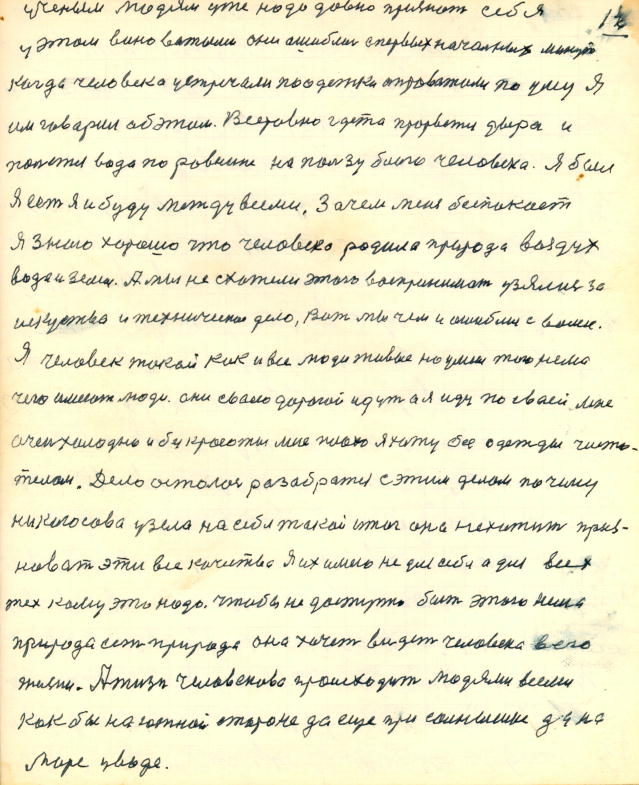 ученым людям уже надо довно признат себя 12
у этом виноватыми они ошиблис с первых начальных минут
когда человека устречали по одежки а проважали по уму Я
им говарил об этом. Всеровно гдета прорветя дыра и
потетя вода по ровнине на ползу всего человека. Я был
Я ест я и буду между всеми. Зачем меня беспокает
Я знаю хорошо что человека родила природа воздух
вода и земля. А мы не схотели этого воспринимат узялис за
искуства и техническое дело, вот мы чем и ошиблис с вами.
Я человек такой как и все люди живые но у мня того нема
чего имеют люди. они сваею дорогой идут а я иду по сваей мне
очен холодно и без красоты мне плохо я хожу без одежды чисто-
телом. Дело осталос разабратся с этим делом почему
никого сова узела на себя такой итог она не хотит приз-
коват эти все качества Я их имею не для себя а для всех
тех кому это надо. чтобы не доступно быт этого нема
природа ест природа она хочет видет человека в его
жизни. А жизн человекова происходит людями всеми
как бы на южной стороне да еще при солнышке да на
море у воде.